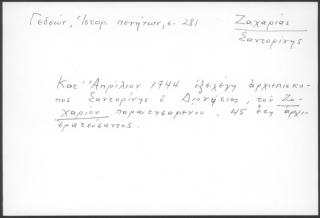 Γεδεών, Ἱστορ. πενήτων, σ. 281
Ζαχαρίας
Σαντορίνης
Κατ' Ἀπρίλιον 1744 ἐξελέγη ἀρχιεπίσκο-
πος Σαντορίνης ὁ Διονύσιος, τοῦ Ζα-
χαρίου παραιτησαμένου, 45 ἔτη ἀρχιε-
ερατεύσαντος.